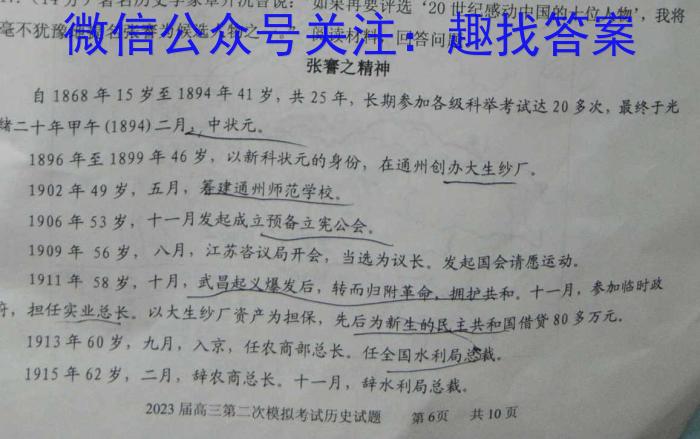 (14分)著名历史学家章开沅曾说:“如果再要评选‘20世纪感动中国的十位人物’,我将
毫不犹豫地提名张謇为候选人物之一。”阅读材料,回答问题。
微信公众号关注:趣找答案
张謇之精神
自1868年15岁至1894年41岁,共25年,长期参加各级科举考试达20多次,最终于光
绪二十年甲午(1894)二月,中状元。
1896年至1899年46岁,以新科状元的身份,在通州创办大生纱厂。
1902年49岁,五月,筹建通州师范学校。
1906年53岁,十一月发起成立预备立宪公会。
1909年 56岁,八月,江苏咨议局开会,当选为议长。发起国会请愿运动。
1911年 58岁,十月,武昌起义爆发后,转而归附革命,拥护共和。十一月,参加临时政
府,担任实业总长。以大生纱厂资产为担保,先后为新生的民主共和国借贷80多万元。
1913年60岁,九月,入京,任农商部总长。任全国水利局总裁。
1915年62岁,二月,辞农商总长。十一月,辞水利局总裁。
2023届高三第二次模拟考试历史试题 第6页 共10页